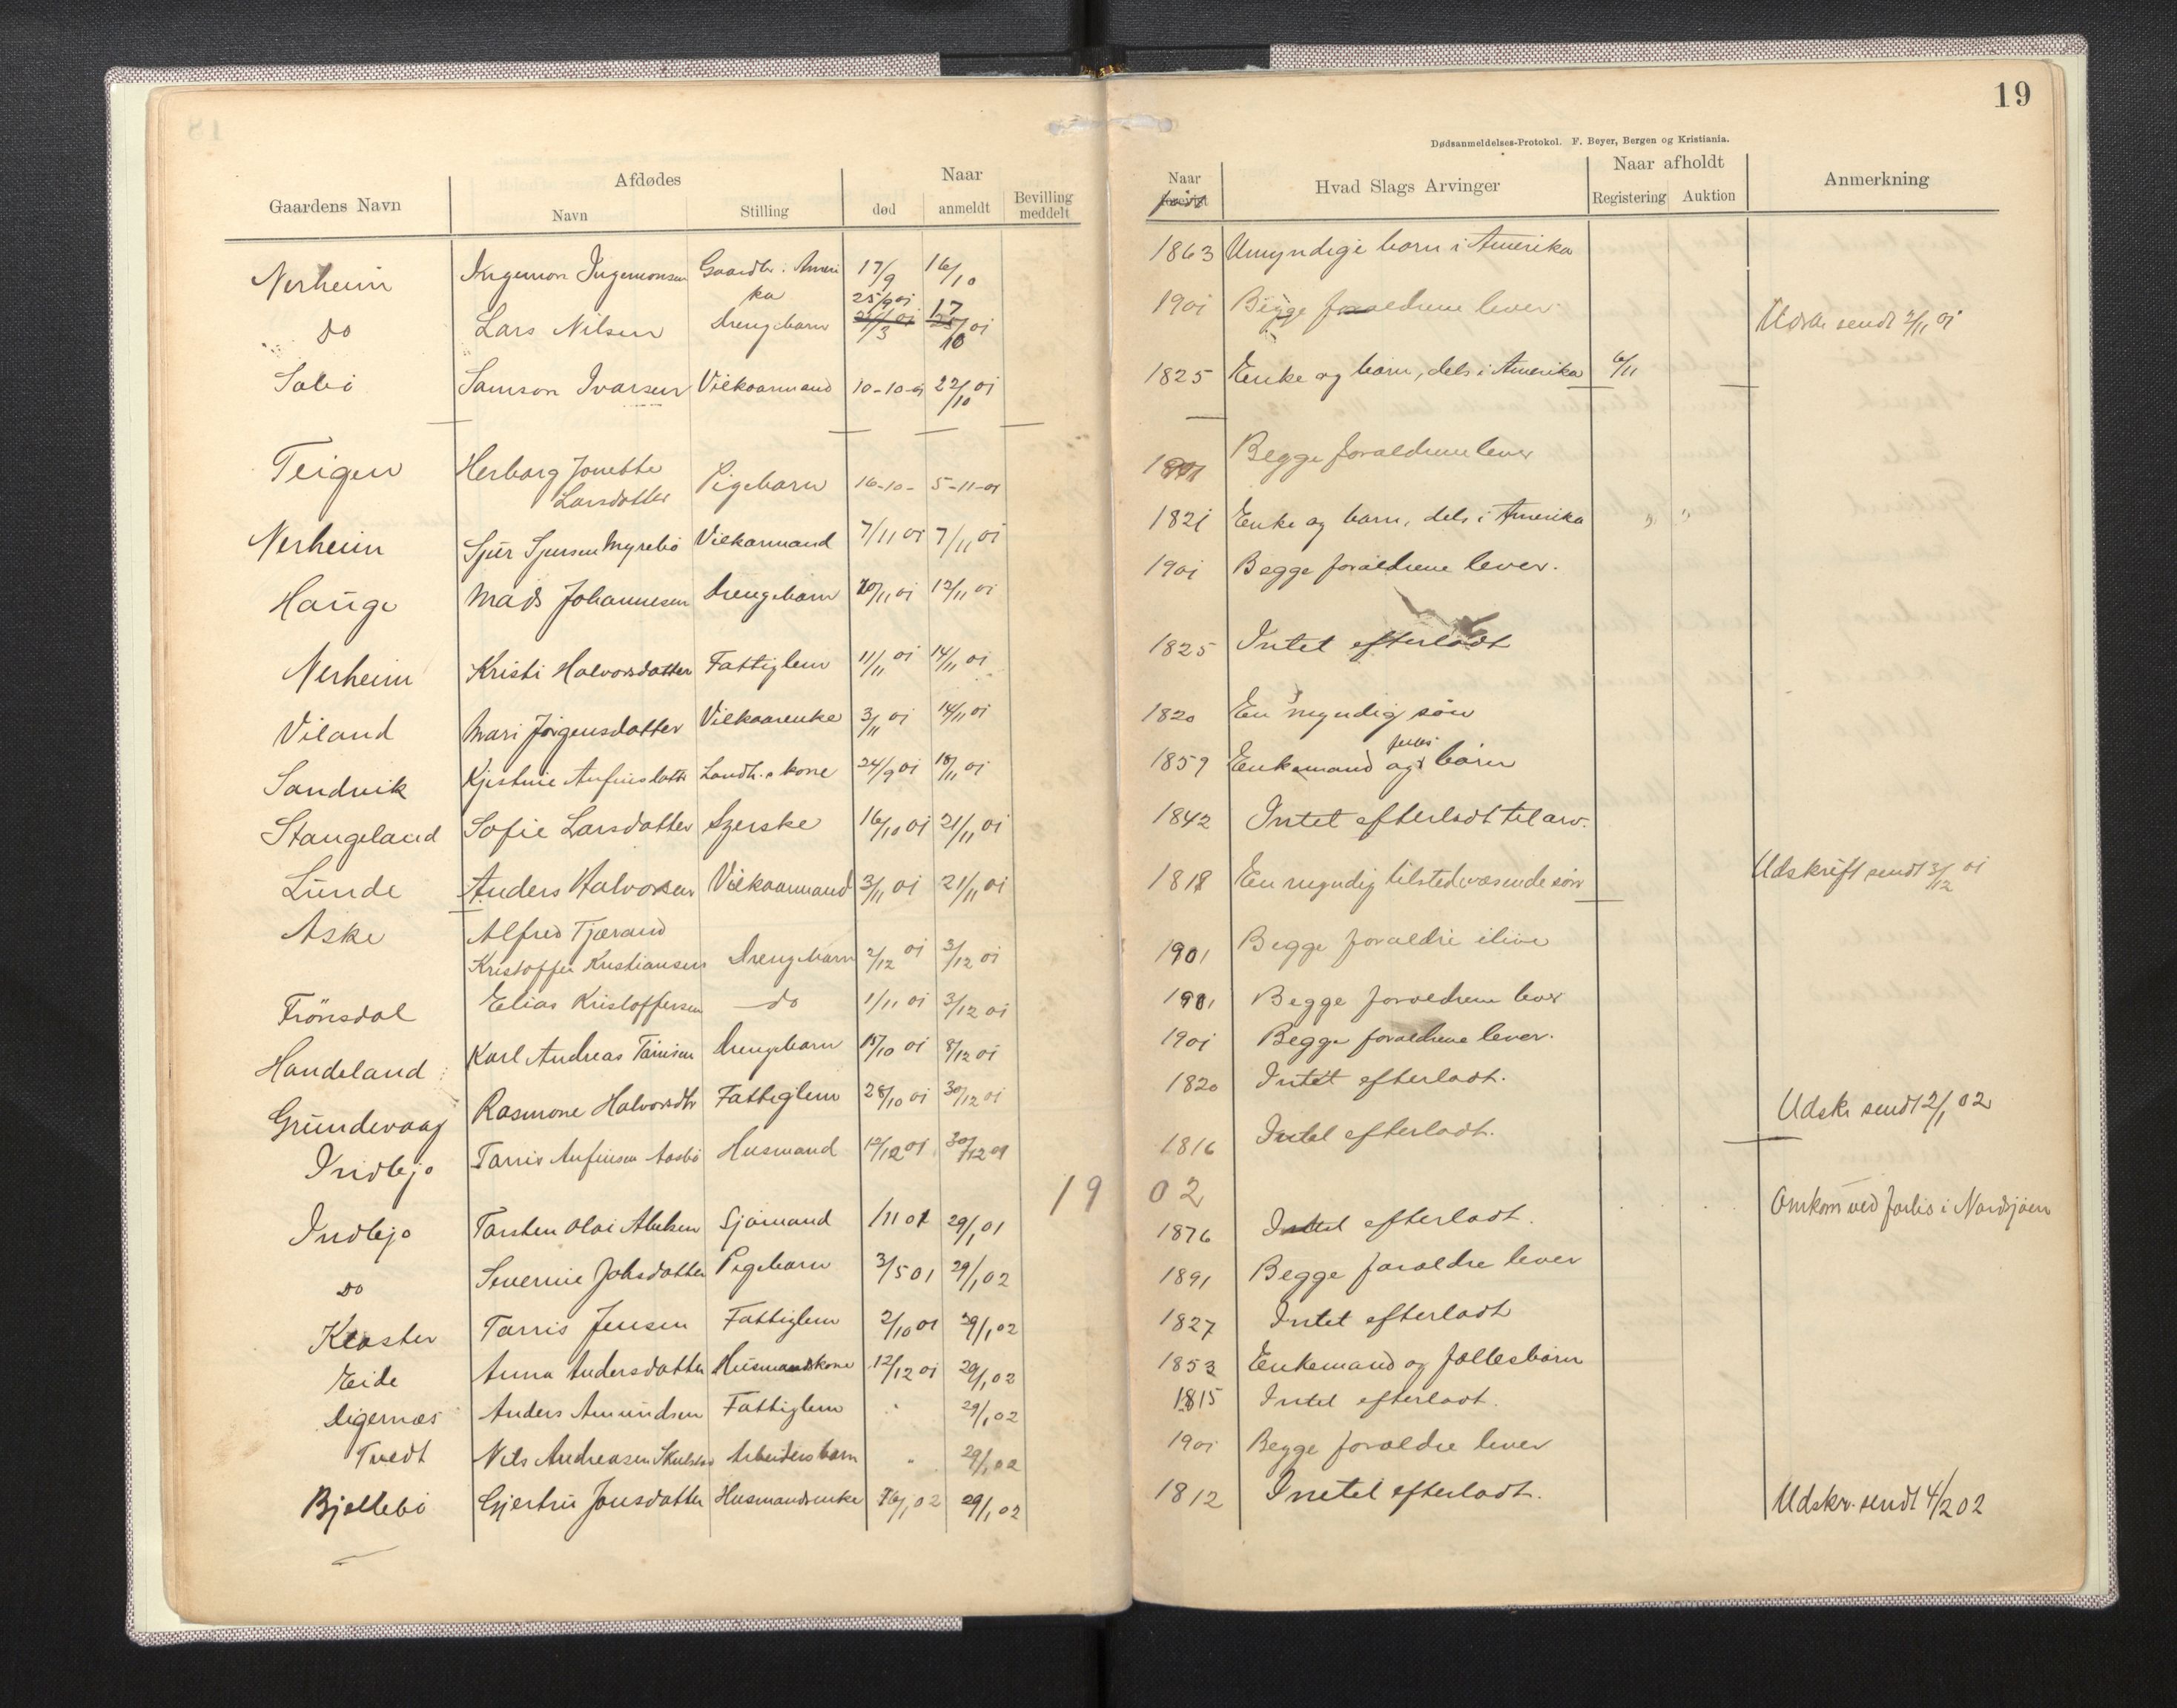 19
Dødsanmeldelses-Protokol. F. Beyer, Bergen og Kristiania.
Gaardens Navn | Afdødes Navn | Stilling | Naar død | anmeldt | Bevilling meddelt | Naar født | Hvad Slags Arvinger | Naar afholdt Registering | Auktion | Anmerkning
Nerheim | Ingemon Ingemonsen | Gaardbr. i Ameri ka | 17/9 | 16/10 | 1863 | Umyndige born i Amerika
do | Lars Nilsen | Drengebarn | 25/9 01 | 17/10 01 | 1901 | Begge foraldrene lever | Udskr sendt 2/11 01
Sabö | Samson Ivarsen | Vilkaarmand | 10-10-01 | 22/10 01 | 1825 | Enke og born, dels i Amerika | 6/11
Teigen | Herborg Jonette Larsdatter | Pigebarn | 16-10- | 5-11-01 | 1901 | Begge foraldrene lever
Nerheim | Sjur Sjursen Myrebö | Vilkarmand | 7/11 01 | 7/11 01 | 1821 | Enke og barn, dels i Amerika | " | "
Hauge | Mads Johannesen | Drengebarn | 10/11 01 | 12/11 01 | 1901 | Begge foraldrene lever.
Nerheim | Kristi Halvorsdatter | Fattiglem | 11/11 01 | 14/11 01 | 1825 | Intet efterladt
Viland | Mari Jörgensdatter | Vilkaarenke | 3/11 01 | 14/11 01 | 1820 | En myndig sön
Sandvik | Kjestine Anfinsdattr | Landh.s kone | 24/9 01 | 18/11 01 | 1859 | Enkemand og felles börn
Stangeland | Sofie Larsdatter | Syerske | 16/10 01 | 21/11 01 | 1842 | Intet efterladt til arv.
Lunde | Anders Halvorsen | Vilkaarmand | 3/11 01 | 21/11 01 | 1818 | En myndig tilstedeværende sön | Udskrift sendt 3/12 01
Aske | Alfred Tjærand Kristoffer Kristiansen | Drengebarn | 2/12 01 | 3/12 01 | 1901 | Begge foraldre ilive
Frönsdal | Elias Kristoffersen | do | 1/11 01 | 3/12 01 | 1901 | Begge foraldrene lever
Handeland | Karl Andreas Tönnisen | Drengebarn | 15/10 01 | 8/12 01 | 1901 | Begge foraldrene lever.
Grundevaag | Rasmone Halvorsdtr | Fattiglem | 28/10 01 | 30/12 01 | 1820 | Intet efterladt.
Indbjo | Tarris Anfinsen Aasbö | Husmand | 12/12 01 | 30/12 01 | 1816 | Intet efterladt. | Udskr sendt 2/1 02
1902
Indbjo | Torsten Olai | Sjömand | /11 01 | 29/1 01 | 1876 | Intet efterladt. | Omkom ved forlis i Nordsjöen
do | Severine Johsdatter | Pigebarn | 3/5 01 | 29/1 02 | 1891 | Begge foraldre lever
Kloster | Tarris Jensen | Fattiglem | 2/10 01 | 29/1 02 | 1827 | Intet efterladt
Eide | Anna Andersdatter | Husmandskone | 12/12 01 | 29/1 02 | 1853 | Enkemand og fallesbörn
Digernæs | Anders Amundsen | Fattiglem | " | 29/1 02 | 1815 | Intet efterladt.
Tvedt | Nils Andreasen | Arbeiders barn | " | 29/1 02 | 1901 | Begge foraldre lever
Bjellebö | Gjertru Jonsdatter | Husmandsenke | 16/1 02 | 29/1 02 | 1812 | Inetet efterladt. | Udskr. sendt 4/2 02